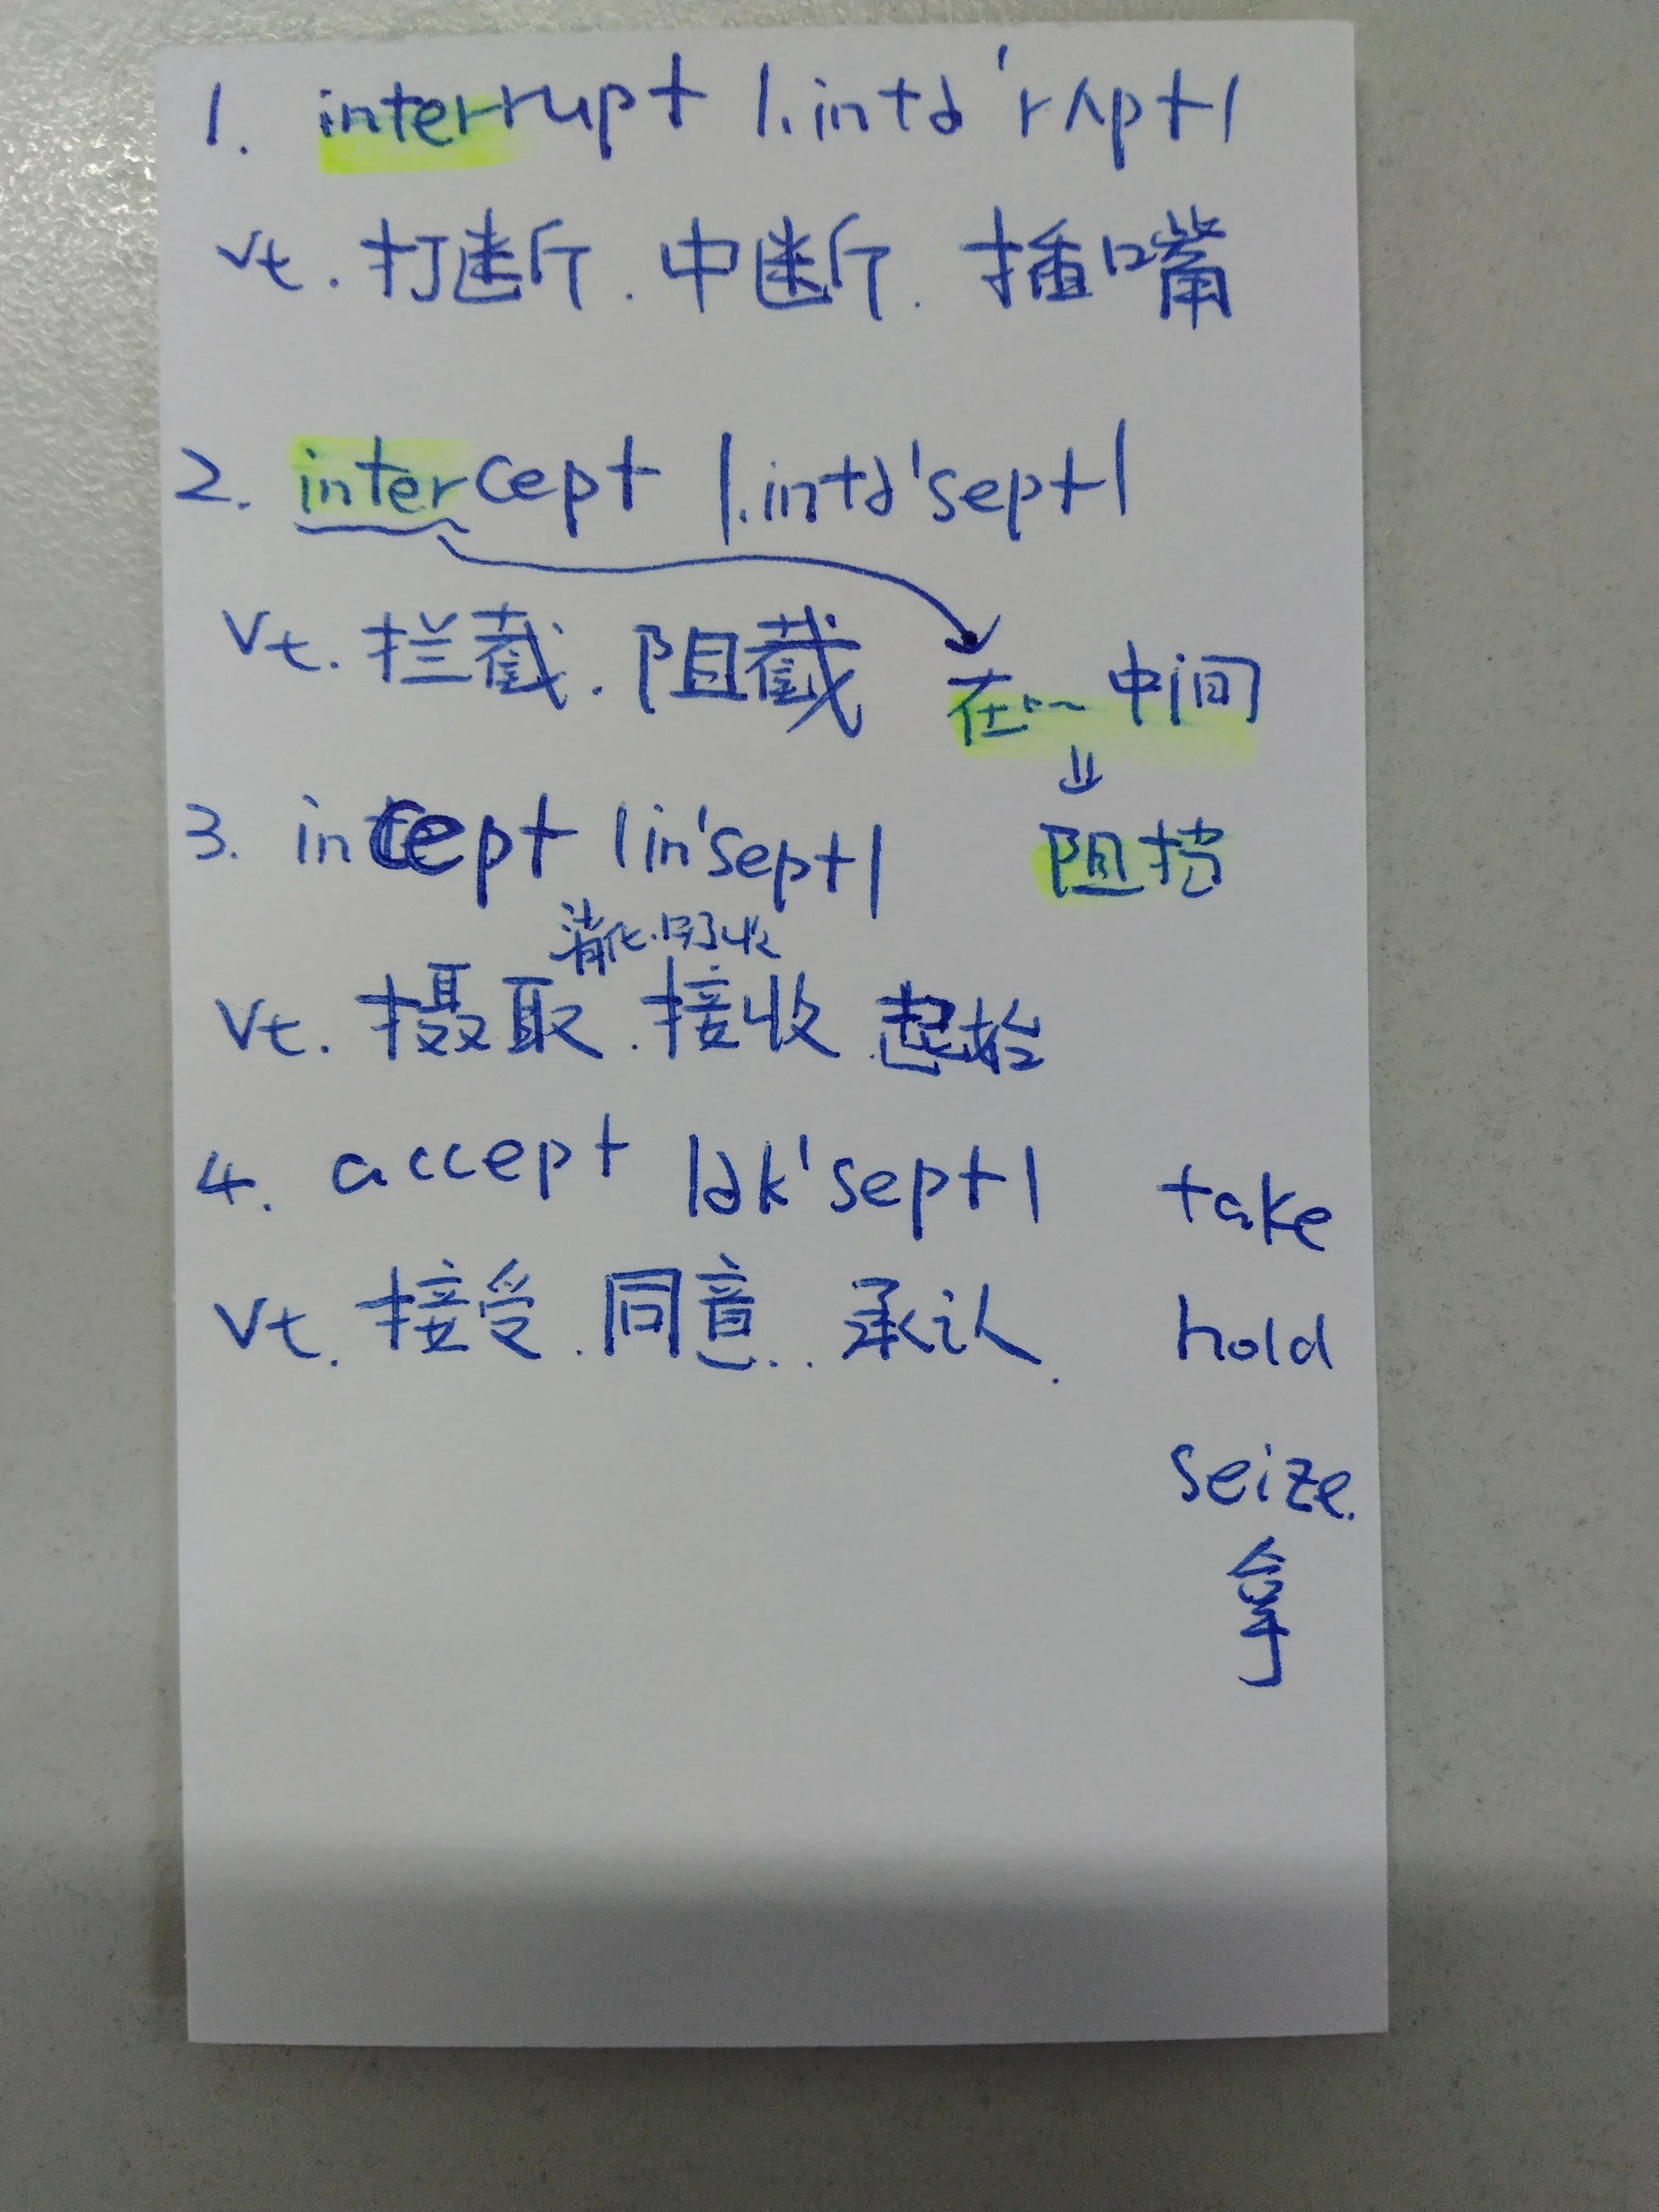 1. interrupt |.intə'rʌpt|
vt. 打断. 中断. 插嘴
2. intercept |.intə'sept|
vt. 拦截. 阻截
在…中间
⇓
阻挡
3. incept |in'sept|
消化.吸收
vt. 摄取. 接收 起始
4. accept |ək'sept|
vt. 接受. 同意.. 承认.
take
hold
seize.
拿